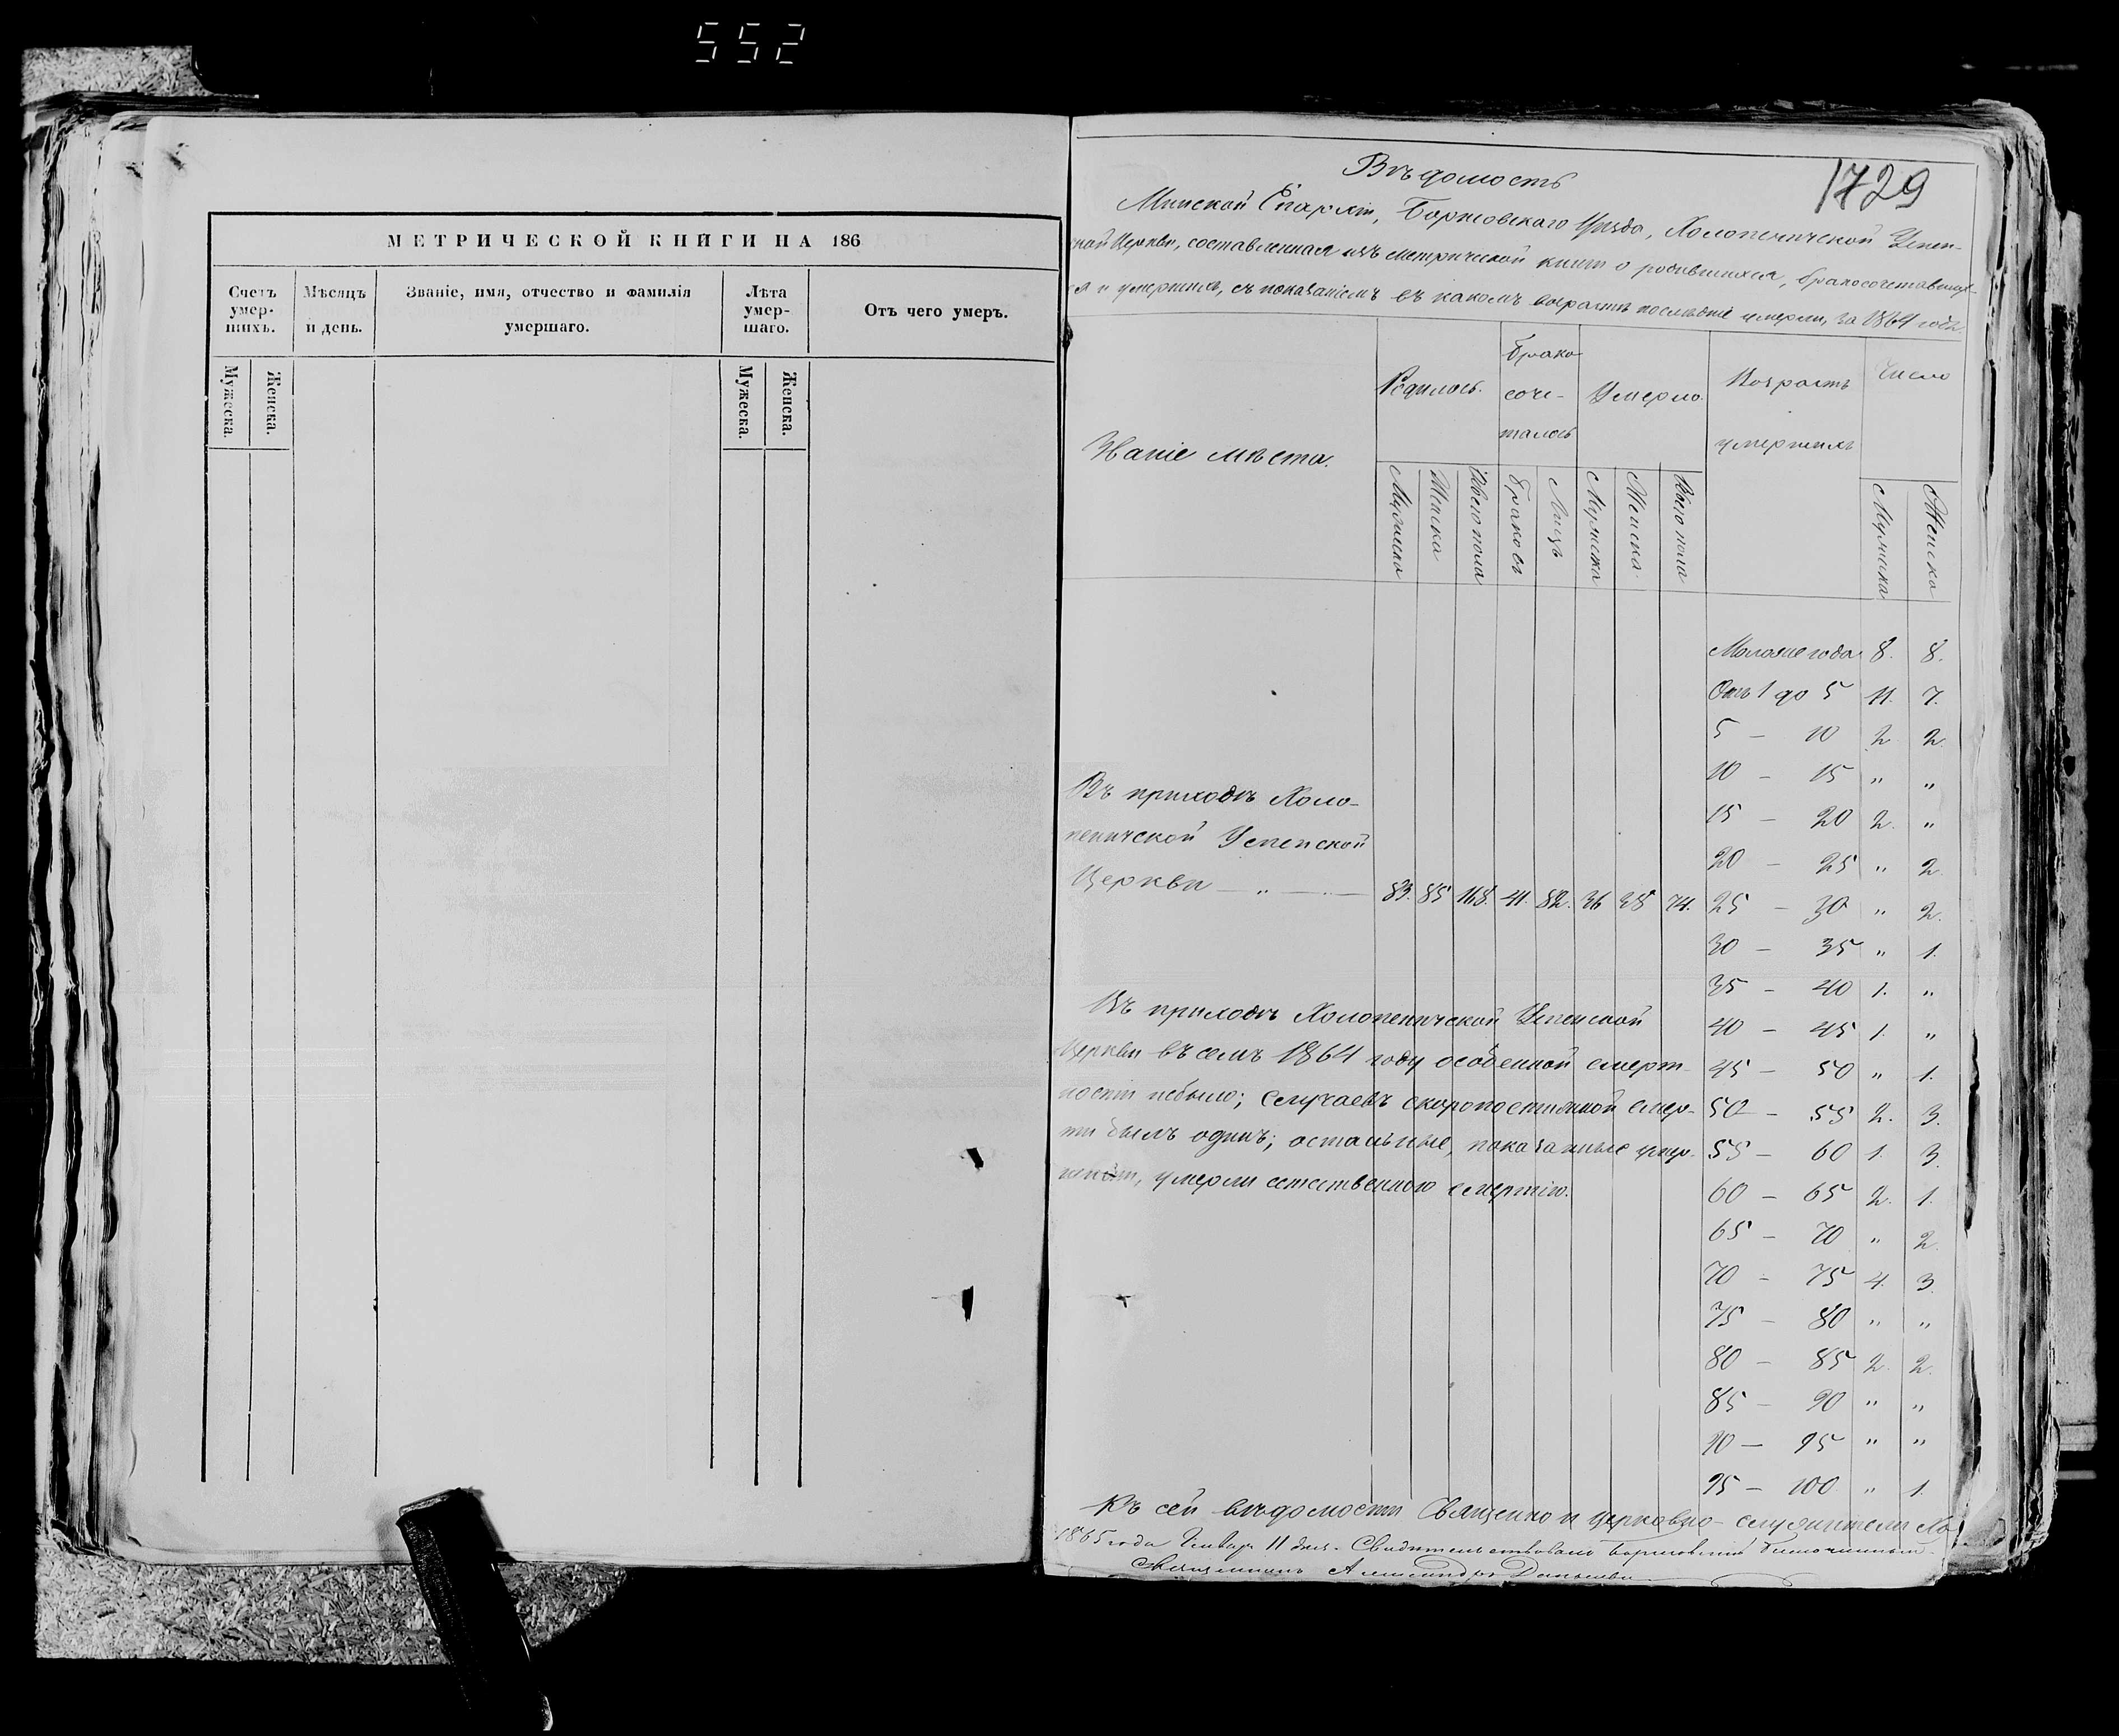 552
МЕТРИЧЕСКОЙ КНИГИ НА 186
Счетъ умер-шихъ.
Мѣсяцъ и день.
Званіе, имя, отчество и фамилія умершаго.
Лѣта умер-шаго.
Отъ чего умеръ.
Мужеска.
Женска.
Мужеска.
Женска.
1729
Вѣдомость
Минской Епархіи, Борисовскаго Уѣзда, Холопеничской Успен-
ской Церкви, составленная изъ метрической книги о родившихся, бракосочетавших-
ся и умершихъ, съ показаніемъ въ какомъ возрастѣ послѣдніе умерли, за 1864 годъ.
Званіе мѣста.
Родилось.
Брако
соче-
талось
Умерло.
Возрастъ
умершихъ
Число
Мужеска
Женска
Обоего пола
Браковъ
Лицъ
Мужеска
Женска
Обоего пола
Мужеска
Женска
Моложе года 8. 8.
Отъ 1 до 5 11. 7.
5 – 10 2 2
10 – 15 " "
15 – 20 2. "
20 – 25 " 2
25 – 30 " 2.
30 – 35 " 1.
35 – 40 1. "
40 – 45 1. "
45 – 50 " 1.
50 – 55 2. 3.
55 – 60 1. 3.
60 – 65 2. 1.
65 – 70 " 2.
70 – 75 4. 3.
75 – 80 " "
80 – 85 2. 2.
85 – 90 " "
90 – 95 " "
95 – 100 " 1.
Въ приходѣ Холо-
пеничской Успенской
Церкви — " — 83. 85 168. 41. 82. 36 38 74.
Въ приходѣ Холопеничской Успенской
Церкви въ семъ 1864 году особенной смерт-
ности небыло; случаевъ скоропостижной смер-
ти былъ одинъ; остальные, показанные умер-
шими, умерли естественною смертію.
Къ сей вѣдомости Священно и церковно-служители Хо-
1865 года Январ. 11 дня. Свидѣтельствовалъ Борисовскій Благочинный
Священникъ Александръ